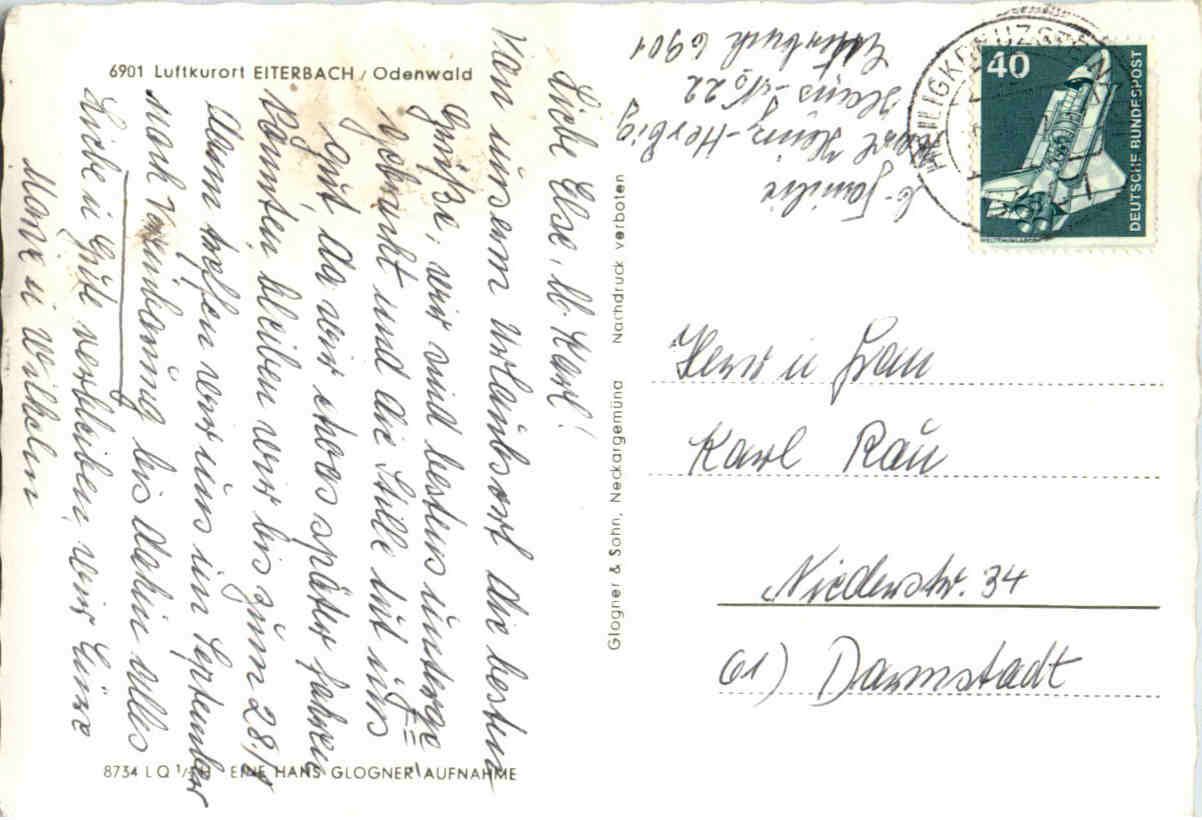 6901 Luftkurort EITERBACH / Odenwald
Liebe Else, lb. Karl!
Von unserm Urlaubsort die besten
Grüße, wir sind bestens unterge=
bracht und die Stille tut uns
gut, da wir etwas später fahren
konnten, bleiben wir bis zum 28./8
dann treffen wir uns im September
nach Vereinbarung bis dahin alles
Liebe u Gute verbleiben wir Eure
Marie u Wilhelm
8734 L Q EINE HANS GLOGNER AUFNAHME
Glogner & Sohn, Neckargemünd Nachdruck verboten
Familie
Heinz-Herbig
Haus-No 22
Eiterbach 6901
HEILIGKREUZSTEIN
40
DEUTSCHE BUNDESPOST
WELTRAUMLABOR
Herr u Frau
Karl Rau
Niederstr. 34
61) Darmstadt